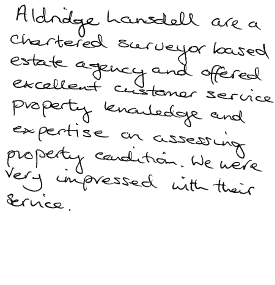 Aldridge Lansdell are a
chartered surveyor based
estate agency and offered
excellent customer service
property knowledge and
expertise on assessing
property condition. We were
very impressed with their
service.